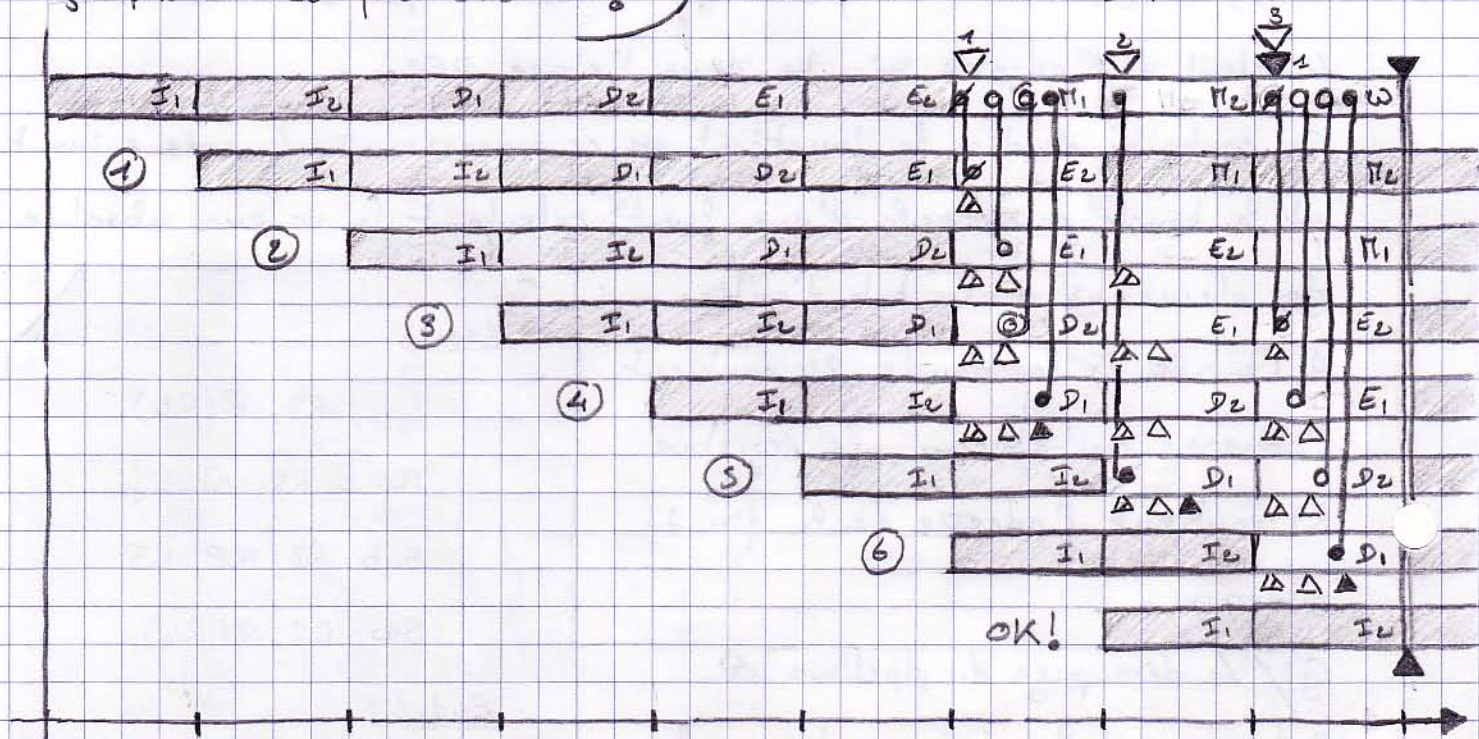 3
1 2 1
I1 I2 D1 D2 E1 E2 M1 M2 W
① I1 I2 D1 D2 E1 E2 M1 M2
② I1 I2 D1 D2 E1 E2 M1
③ I1 I2 D1 D2 E1 E2
④ I1 I2 D1 D2 E1
⑤ I1 I2 D1 D2
⑥ I1 I2 D1
OK! I1 I2